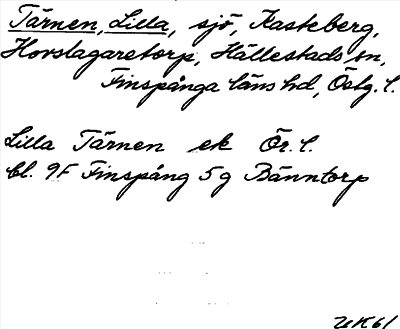 Tärnen, Lilla, sjö, Kasteberg,
Hovslagaretorp, Hällestads sn,
Finspånga läns hd, Östg. l.
Lilla Tärnen ek Ör. l.
bl. 9F Finspång 5g Bänntorp
UK61